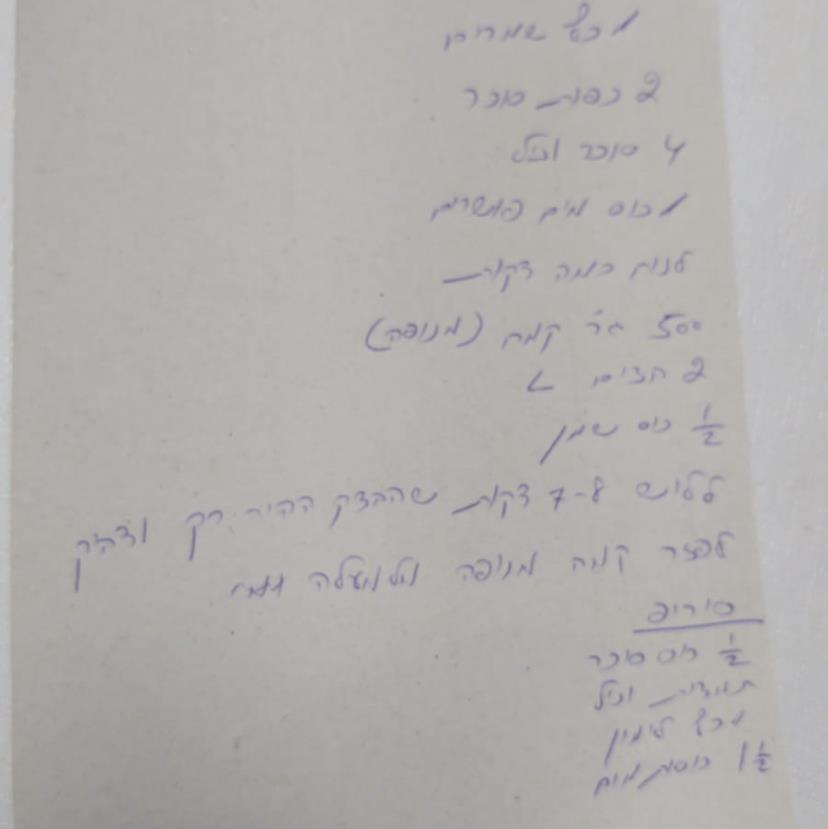 1 כף שמרים
2 כפות סוכר
4 סוכר וניל
1 כוס מים פושרים
לנוח כמה דקות
500 גר' קמח (מנופה)
2 חצים L
½ כוס שמן
ללוש 7-8 דקות שהבצק יהיה רך ודביק
לפזר קמח מנופה מלמעלה
סירופ
½ כוס סוכר
תמצית וניל
1 כף לימון
1½ כוסות מים